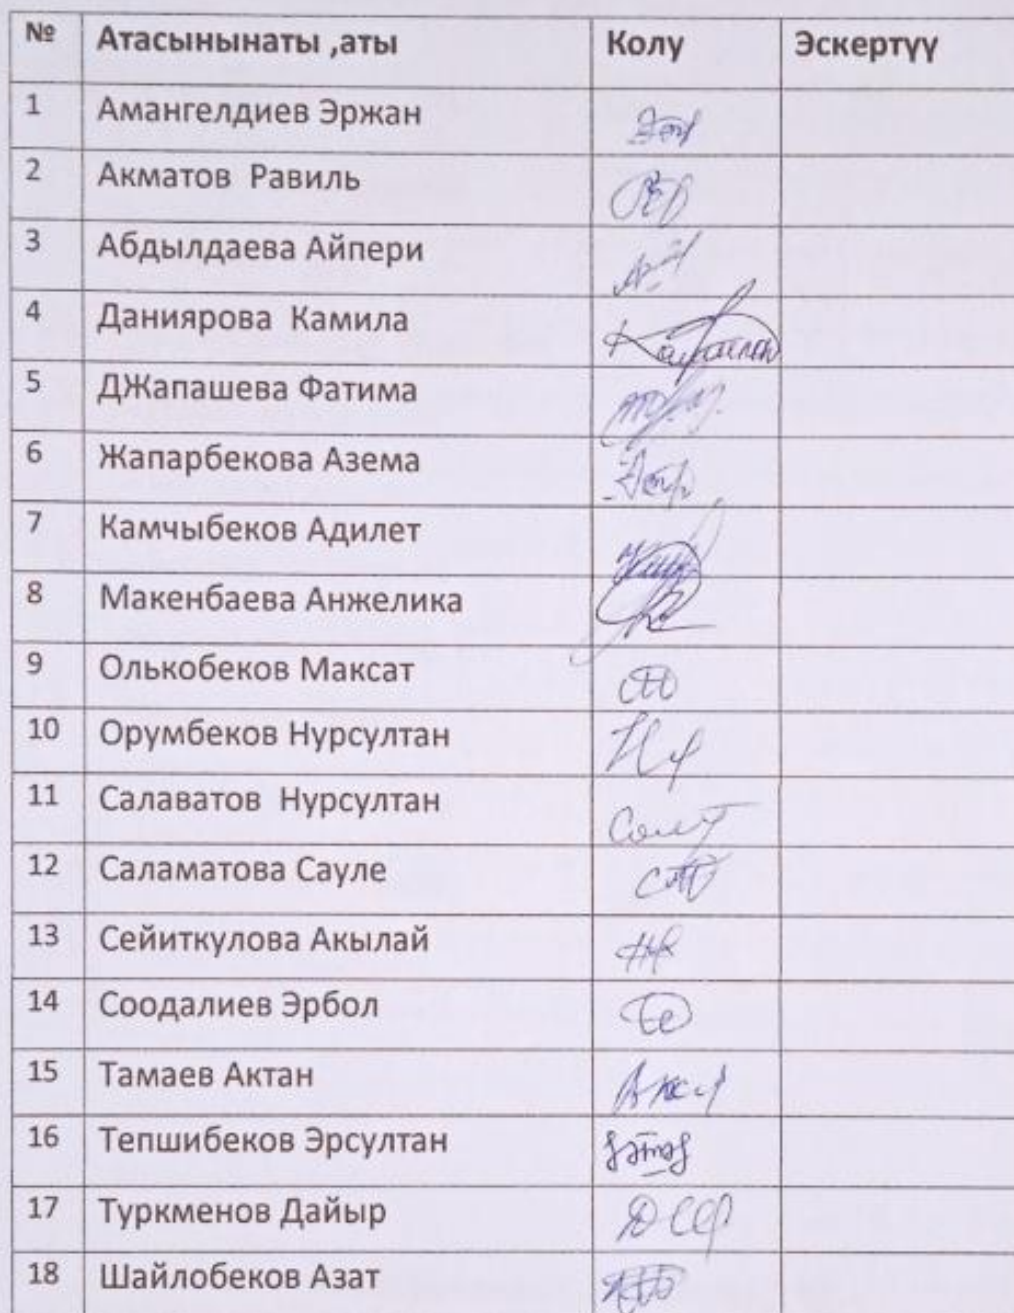 № Атасынынаты ,аты Колу Эскертүү
1 Амангелдиев Эржан
2 Акматов Равиль
3 Абдылдаева Айпери
4 Даниярова Камила
5 ДЖапашева Фатима
6 Жапарбекова Азема
7 Камчыбеков Адилет
8 Макенбаева Анжелика
9 Олькобеков Максат
10 Орумбеков Нурсултан
11 Салаватов Нурсултан
12 Саламатова Сауле
13 Сейиткулова Акылай
14 Соодалиев Эрбол
15 Тамаев Актан
16 Тепшибеков Эрсултан
17 Туркменов Дайыр
18 Шайлобеков Азат